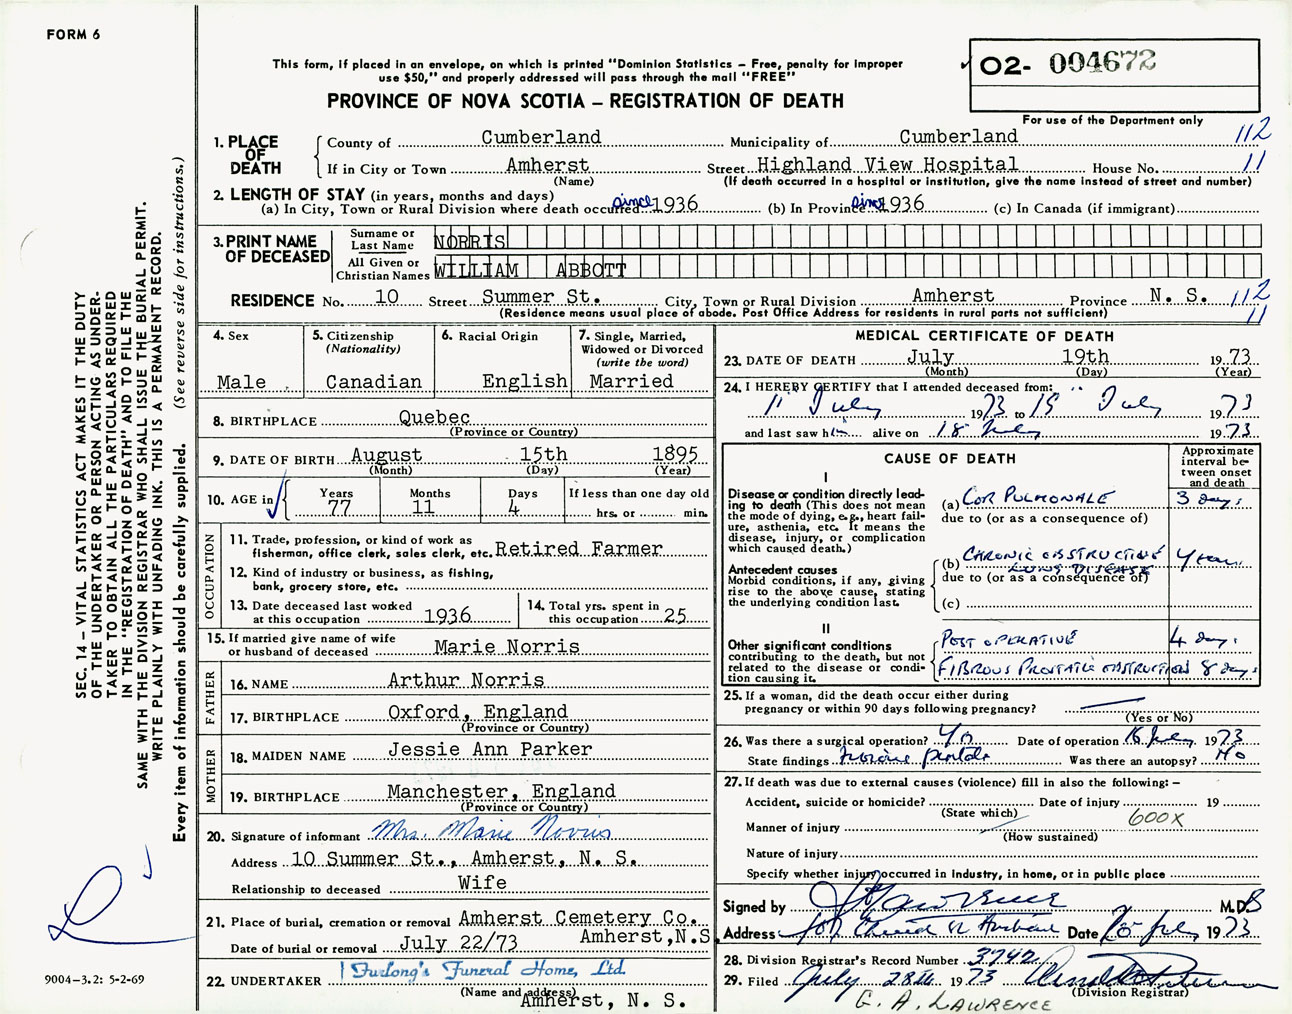 FORM 6
This form, if placed in an envelope, on which is printed "Dominion Statistics – Free, penalty for improper
use $50," and properly addressed will pass through the mail "FREE"
PROVINCE OF NOVA SCOTIA – REGISTRATION OF DEATH
O2- 004672
For use of the Department only
1. PLACE OF DEATH
County of Cumberland Municipality of Cumberland 112
If in City or Town Amherst Street Highland View Hospital House No. 11
(Name) (If death occurred in a hospital or institution, give the name instead of street and number)
2. LENGTH OF STAY (in years, months and days)
(a) In City, Town or Rural Division where death occurred since 1936 (b) In Province since 1936 (c) In Canada (if immigrant)
3. PRINT NAME OF DECEASED
Surname or Last Name NORRIS
All Given or Christian Names WILLIAM ABBOTT
RESIDENCE No. 10 Street Summer St. City, Town or Rural Division Amherst Province N. S. 112
(Residence means usual place of abode. Post Office Address for residents in rural parts not sufficient) 11
4. Sex
Male
5. Citizenship
(Nationality)
Canadian
6. Racial Origin
English
7. Single, Married,
Widowed or Divorced
(write the word)
Married
8. BIRTHPLACE Quebec
(Province or Country)
9. DATE OF BIRTH August 15th 1895
(Month) (Day) (Year)
10. AGE in
Years 77
Months 11
Days 4
If less than one day old
hrs. or min.
OCCUPATION
11. Trade, profession, or kind of work as
fisherman, office clerk, sales clerk, etc. Retired Farmer
12. Kind of industry or business, as fishing,
bank, grocery store, etc.
13. Date deceased last worked
at this occupation 1936
14. Total yrs. spent in
this occupation 25
15. If married give name of wife
or husband of deceased Marie Norris
FATHER
16. NAME Arthur Norris
17. BIRTHPLACE Oxford, England
(Province or Country)
MOTHER
18. MAIDEN NAME Jessie Ann Parker
19. BIRTHPLACE Manchester, England
(Province or Country)
20. Signature of informant Mrs. Marie Norris
Address 10 Summer St., Amherst, N. S.
Relationship to deceased Wife
21. Place of burial, cremation or removal Amherst Cemetery Co.
Date of burial or removal July 22/73 Amherst,N.S
22. UNDERTAKER Furlong's Funeral Home, Ltd.
(Name and address)
Amherst, N. S.
MEDICAL CERTIFICATE OF DEATH
23. DATE OF DEATH July 19th 1973
(Month) (Day) (Year)
24. I HEREBY CERTIFY that I attended deceased from:
11 July 1973 to 19 July 1973
and last saw him alive on 18 July 1973
CAUSE OF DEATH
Approximate
interval be-
tween onset
and death
I
Disease or condition directly lead-
ing to death (This does not mean
the mode of dying, e.g., heart fail-
ure, asthenia, etc. It means the
disease, injury, or complication
which caused death.)
(a) COR PULMONALE 3 days
due to (or as a consequence of)
Antecedent causes
Morbid conditions, if any, giving
rise to the above cause, stating
the underlying condition last.
(b) CHRONIC OBSTRUCTIVE LUNG DISEASE years
due to (or as a consequence of)
(c)
II
Other significant conditions
contributing to the death, but not
related to the disease or condi-
tion causing it.
POST OPERATIVE 4 days
FIBROUS PROSTATIC OBSTRUCTION 8 days
25. If a woman, did the death occur either during
pregnancy or within 90 days following pregnancy?
(Yes or No)
26. Was there a surgical operation? Yes Date of operation July 1973
State findings Was there an autopsy? No
27. If death was due to external causes (violence) fill in also the following: –
Accident, suicide or homicide? Date of injury 19
(State which)
600X
Manner of injury
(How sustained)
Nature of injury
Specify whether injury occurred in industry, in home, or in public place
Signed by Lawrence M.D.
Address Church St Amherst Date July 1973
28. Division Registrar's Record Number 3742
29. Filed July 28th 1973
(Division Registrar)
G. A. LAWRENCE
SEC. 14 – VITAL STATISTICS ACT MAKES IT THE DUTY
OF THE UNDERTAKER OR PERSON ACTING AS UNDER-
TAKER TO OBTAIN ALL THE PARTICULARS REQUIRED
IN THE "REGISTRATION OF DEATH" AND TO FILE THE
SAME WITH THE DIVISION REGISTRAR WHO SHALL ISSUE THE BURIAL PERMIT.
WRITE PLAINLY WITH UNFADING INK. THIS IS A PERMANENT RECORD.
Every item of information should be carefully supplied. (See reverse side for instructions.)
9004–3.2: 5-2-69